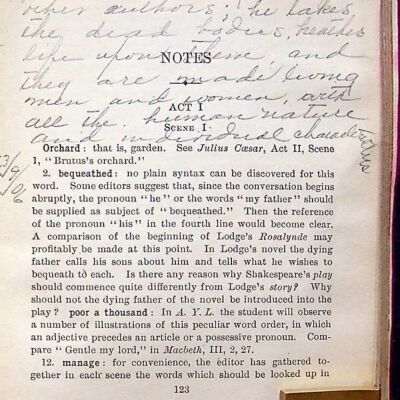 other authors; he takes
the dead bodies, breathes
life upon them, and
NOTES
they are made living
men and women, with
ACT I
all the human nature
SCENE I
and individual characteristics
3/9/06
Orchard: that is, garden. See Julius Cæsar, Act II, Scene
1, "Brutus's orchard."
2. bequeathed: no plain syntax can be discovered for this
word. Some editors suggest that, since the conversation begins
abruptly, the pronoun "he" or the words "my father" should
be supplied as subject of "bequeathed." Then the reference
of the pronoun "his" in the fourth line would become clear.
A comparison of the beginning of Lodge's Rosalynde may
profitably be made at this point. In Lodge's novel the dying
father calls his sons about him and tells what he wishes to
bequeath to each. Is there any reason why Shakespeare's play
should commence quite differently from Lodge's story? Why
should not the dying father of the novel be introduced into the
play? poor a thousand: In A. Y. L. the student will observe
a number of illustrations of this peculiar word order, in which
an adjective precedes an article or a possessive pronoun. Com-
pare "Gentle my lord," in Macbeth, III, 2, 27.
12. manage: for convenience, the editor has gathered to-
gether in each scene the words which should be looked up in
123